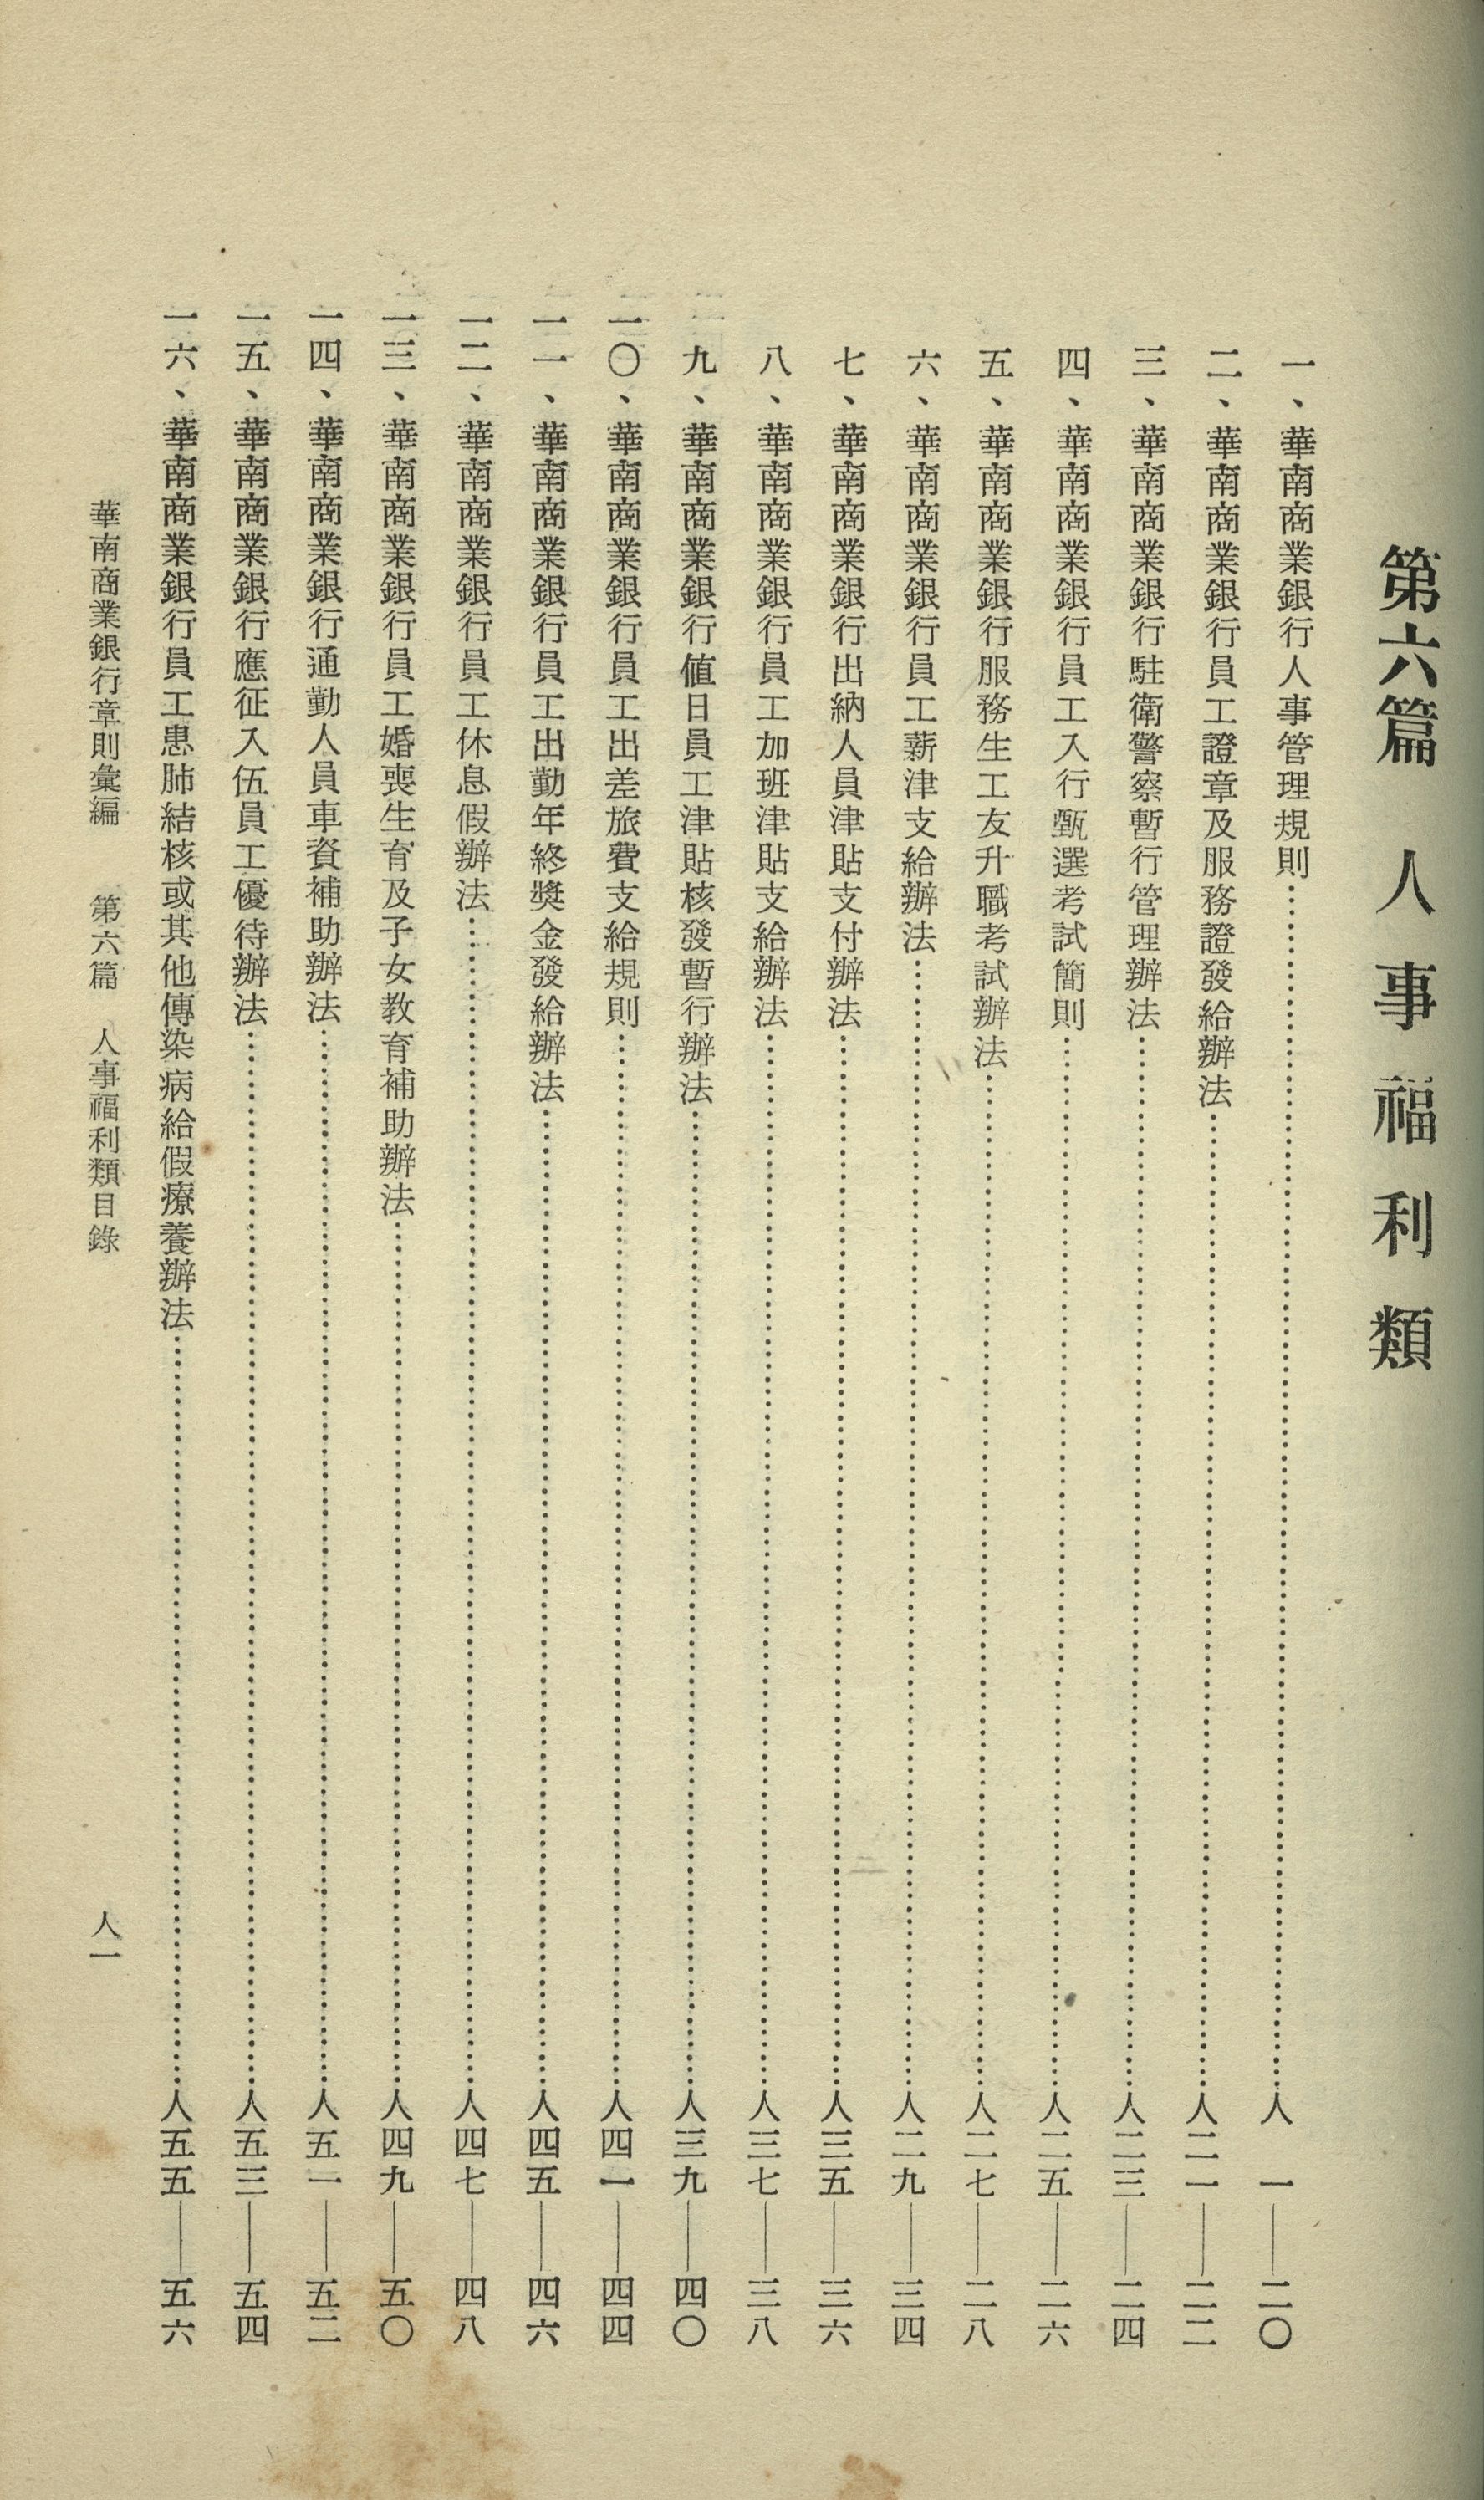 第六篇　人事福利類
一、華南商業銀行人事管理規則……人　一——二〇
二、華南商業銀行員工證章及服務證發給辦法……人二一——二二
三、華南商業銀行駐衛警察暫行管理辦法……人二三——二四
四、華南商業銀行員工入行甄選考試簡則……人二五——二六
五、華南商業銀行服務生工友升職考試辦法……人二七——二八
六、華南商業銀行員工薪津支給辦法……人二九——三四
七、華南商業銀行出納人員津貼支付辦法……人三五——三六
八、華南商業銀行員工加班津貼支給辦法……人三七——三八
九、華南商業銀行値日員工津貼核發暫行辦法……人三九——四〇
一〇、華南商業銀行員工出差旅費支給規則……人四一——四四
一一、華南商業銀行員工出勤年終獎金發給辦法……人四五——四六
一二、華南商業銀行員工休息假辦法……人四七——四八
一三、華南商業銀行員工婚喪生育及子女教育補助辦法……人四九——五〇
一四、華南商業銀行通勤人員車資補助辦法……人五一——五二
一五、華南商業銀行應征入伍員工優待辦法……人五三——五四
一六、華南商業銀行員工患肺結核或其他傳染病給假療養辦法……人五五——五六
華南商業銀行章則彙編　第六篇　人事福利類目錄　人一